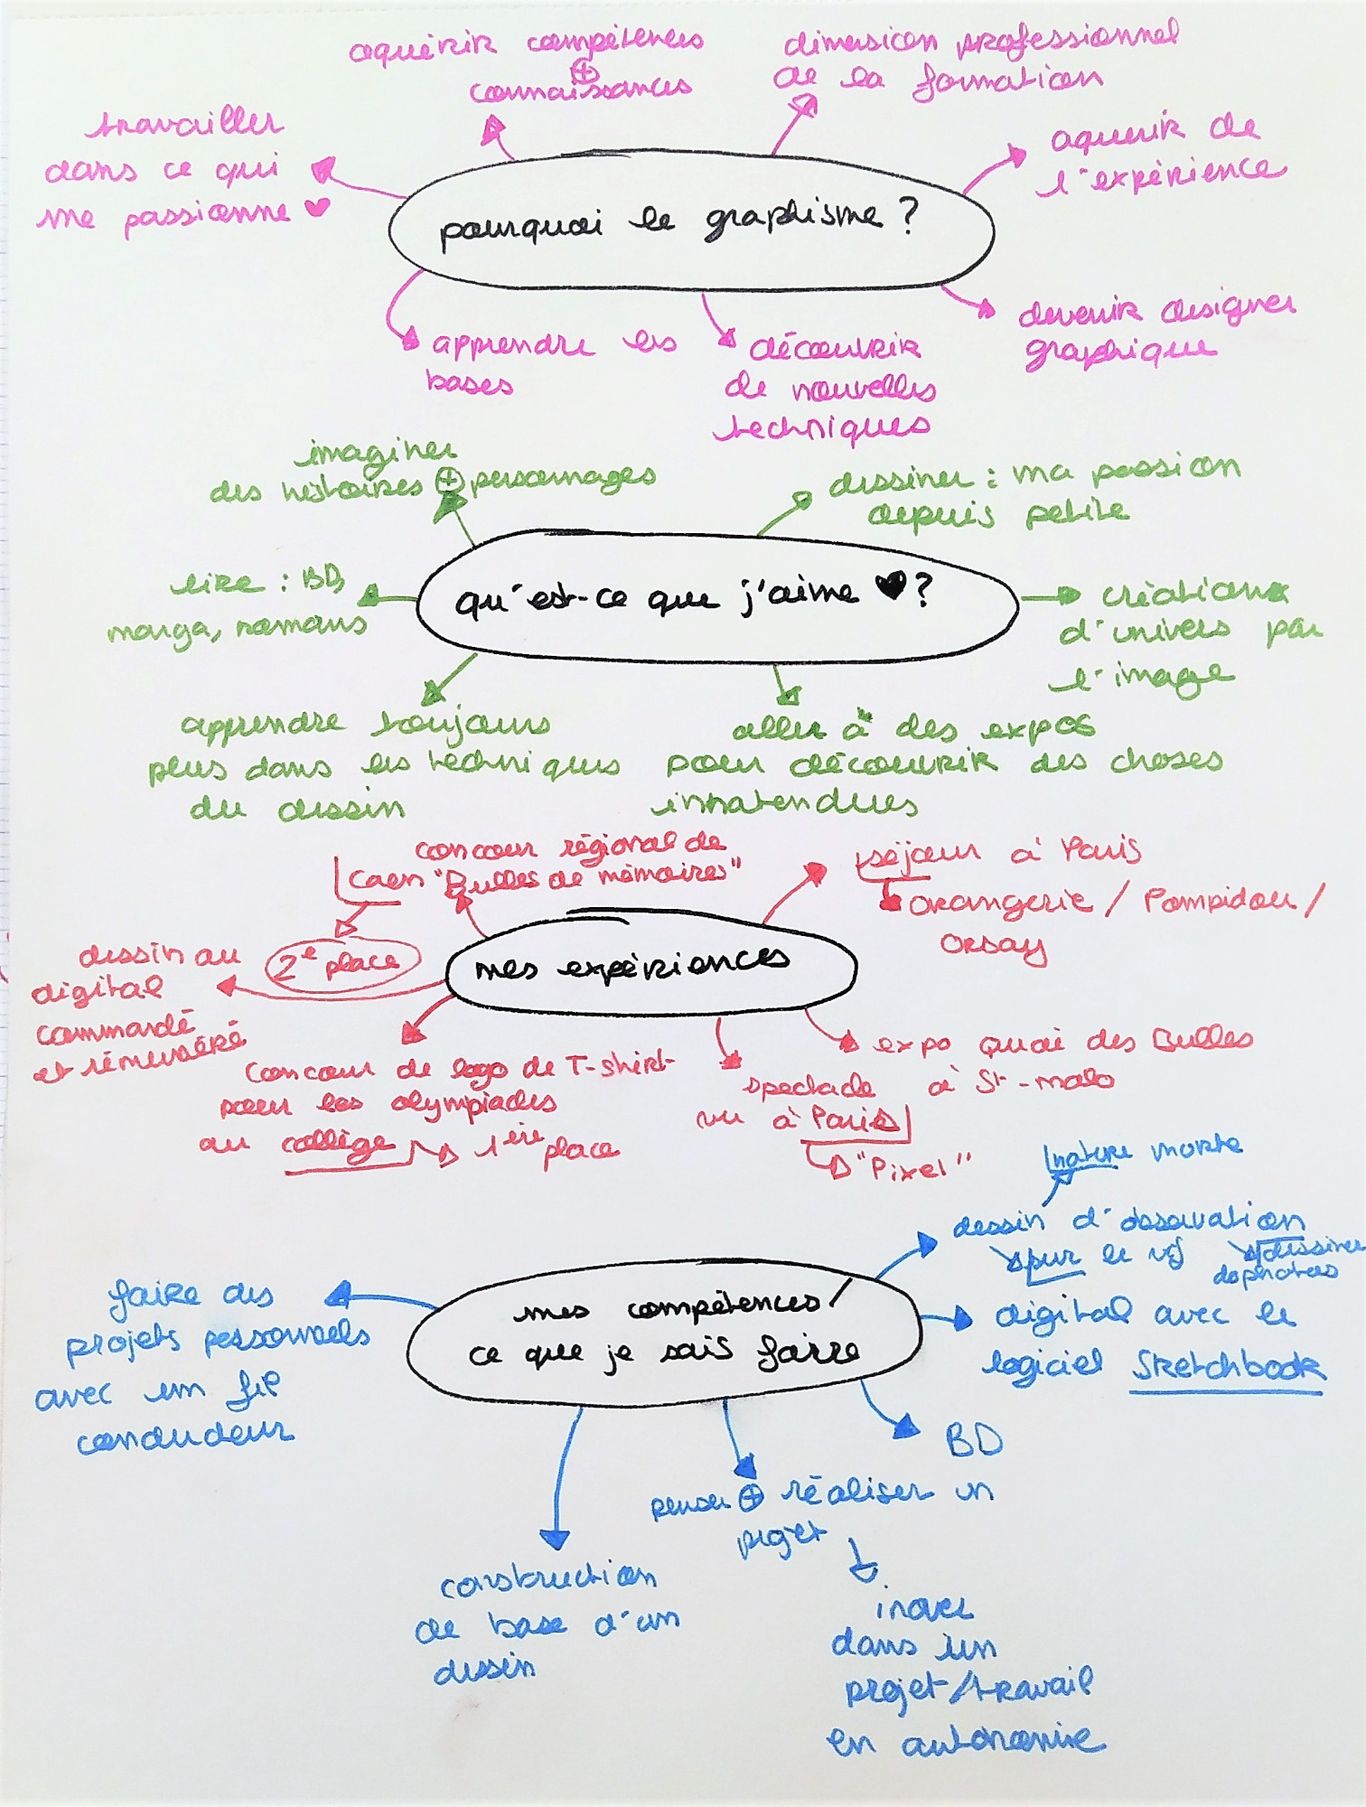 aquérir compétences
⊕
connaissances
dimension professionnel
de la formation
travailler
dans ce qui
me passionne ♥
aquerir de
l'expérience
pourquoi le graphisme ?
devenir designer
graphique
apprendre les
bases
découvrir
de nouvelles
techniques
imaginer
des histoires ⊕ personnages
dessiner : ma passion
depuis petite
lire : BD,
manga, romans
qu'est-ce que j'aime ♥ ?
créations
d'univers par
l'image
apprendre toujours
plus dans les techniques
du dessin
aller à des expos
pour découvrir des choses
innatendues
concour régional de
Caen "Bulles de mémoires"
2e place
séjour à Paris
orangerie / Pompidou /
Orsay
dessin au
digital
commandé
et rémunéré
mes expériences
concour de logo de T-shirt
pour les olympiades
au collège → 1ère place
spectacle
vu à Paris
"Pixel"
expo quai des Bulles
à St-malo
nature morte
dessin d'observation
sur le vif
dessiner
de photos
faire des
projets personnels
avec un fil
conducteur
mes compétences/
ce que je sais faire
digital avec le
logiciel Sketchbook
BD
penser ⊕ réaliser un
projet
construction
de base d'un
dessin
inover
dans un
projet/travail
en autonomie